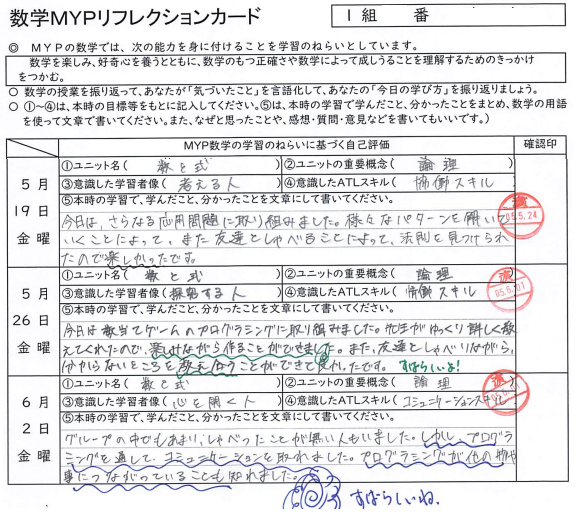 数学MYPリフレクションカード
1組 番
◎ MYPの数学では、次の能力を身に付けることを学習のねらいとしています。
数学を楽しみ、好奇心を養うとともに、数学のもつ正確さや数学によって成しうることを理解するためのきっかけ
をつかむ。
○ 数学の授業を振り返って、あなたが「気づいたこと」を言語化して、あなたの「今日の学び方」を振り返りましょう。
○ ①~④は、本時の目標等をもとに記入してください。⑤は、本時の学習で学んだこと、分かったことをまとめ、数学の用語
を使って文章で書いてください。また、なぜと思ったことや、感想・質問・意見などを書いてもいいです。)
MYP数学の学習のねらいに基づく自己評価 確認印
5月
19日
金曜
①ユニット名( 数と式 )②ユニットの重要概念( 論理 )
③意識した学習者像( 考える人 )④意識したATLスキル( 協働スキル
⑤本時の学習で、学んだこと、分かったことを文章にして書いてください。
今日は、さらなる応用問題に取り組みました。様々なパターンを解いて
いくことによって、また友達としゃべることによって、法則を見つけられ
たので楽しかったです。
05.5.24
5月
26日
金曜
①ユニット名( 数と式 )②ユニットの重要概念( 論理 )
③意識した学習者像( 探究する人 )④意識したATLスキル( 協働スキル
⑤本時の学習で、学んだこと、分かったことを文章にして書いてください。
今日は数当てゲームのプログラミングに取り組みました。先生がゆっくり詳しく教
えてくれたので、楽しみながら作ることができました。また、友達としゃべりながら、
分からないところを教え合うことができて良かったです。 すばらしい!
05.6.01
6月
2日
金曜
①ユニット名( 数と式 )②ユニットの重要概念( 論理 )
③意識した学習者像( 心を開く人 )④意識したATLスキル( コミュニケーションスキル
⑤本時の学習で、学んだこと、分かったことを文章にして書いてください。
グループの中でもあまりしゃべったことが無い人もいました。しかし、プログラ
ミングを通して、コミュニケーションを取れました。プログラミングが他の物や
事につながっていることも知れました。
すばらしいね。